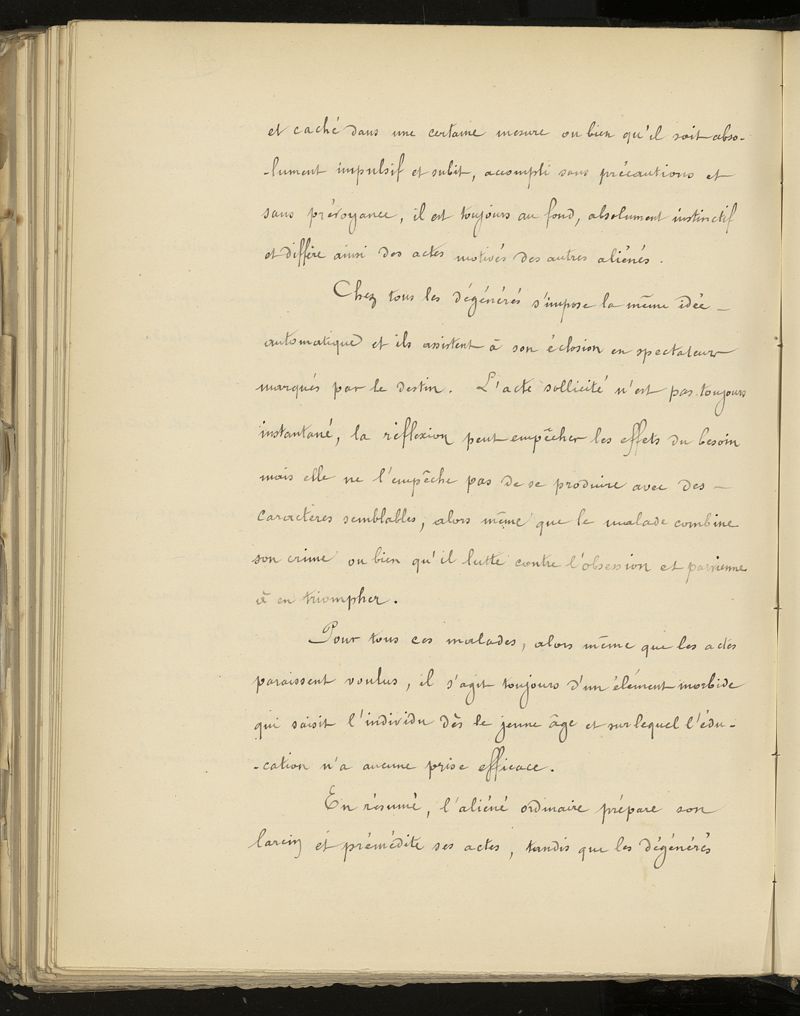 et caché dans une certaine mesure ou bien qu'il soit abso-
-lument impulsif et subit, accompli sans précautions et
sans prévoyance, il est toujours au fond, absolument instinctif
et diffère ainsi des actes motivés des autres aliénés.
Chez tous les dégénérés s'impose la même idée -
automatique et ils assistent à son éclosion en spectateurs
marqués par le destin. L'acte sollicité n'est pas toujours
instantané, la réflexion peut empêcher les effets du besoin
mais elle ne l'empêche pas de se produire avec des -
caractères semblables, alors même que le malade combine
son crime ou bien qu'il lutte contre l'obsession et parvienne
à en triompher.
Pour tous ces malades, alors même que les actes
paraissent voulus, il s'agit toujours d'un élément morbide
qui saisit l'individu dès le jeune âge et sur lequel l'édu-
-cation n'a aucune prise efficace.
En résumé, l'aliéné ordinaire prépare son
larcin et prémédite ses actes, tandis que les dégénérés